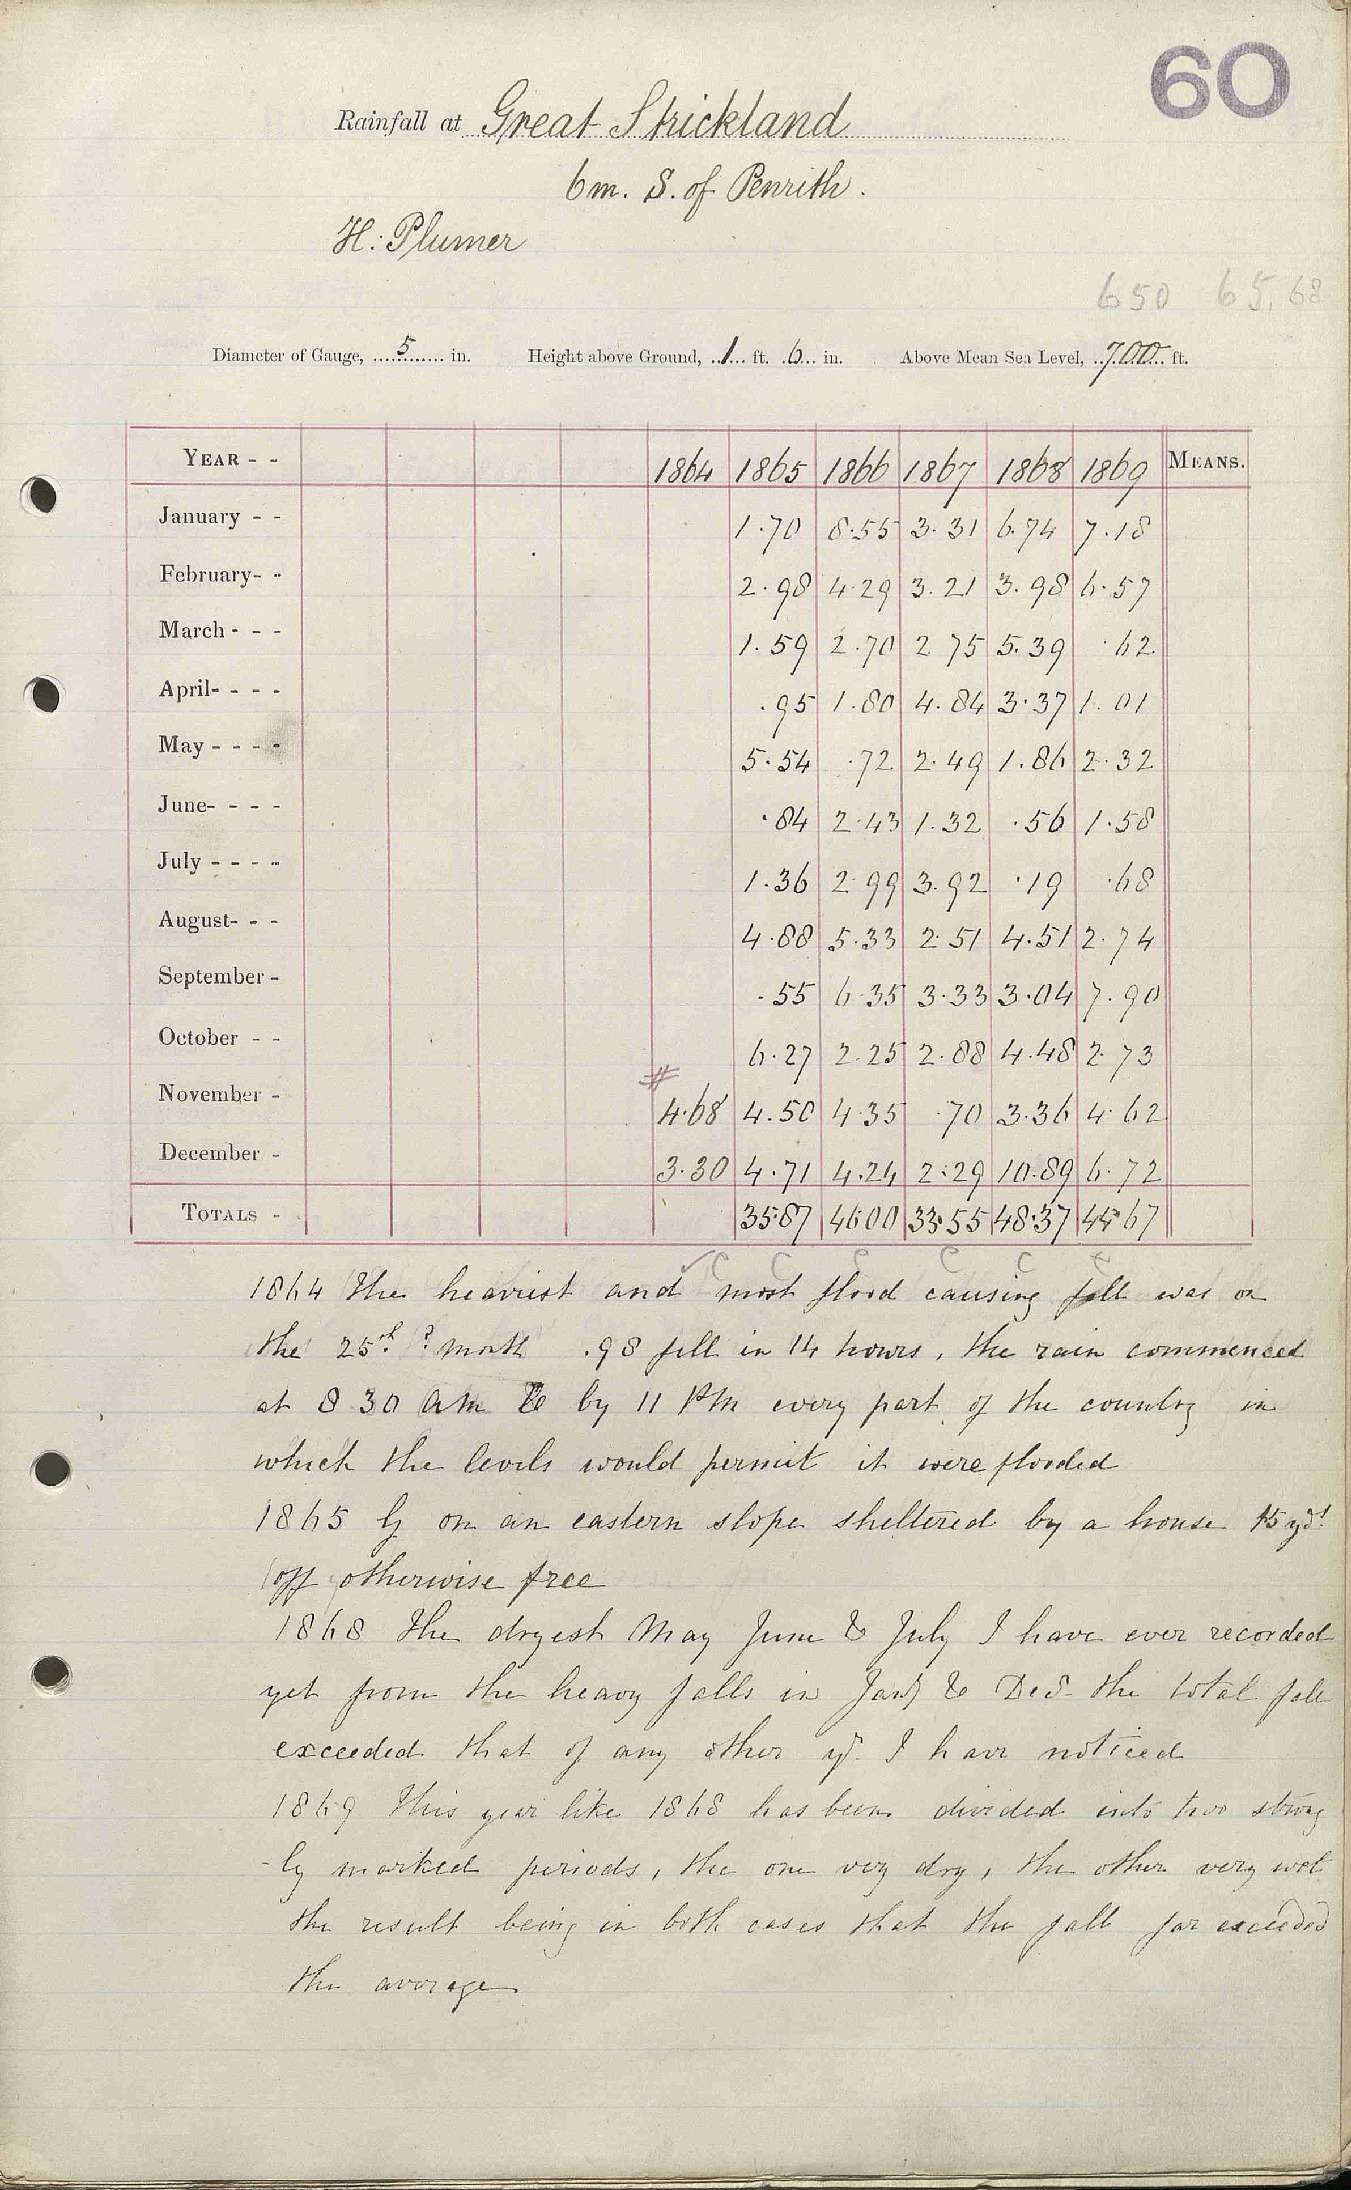 60
Rainfall at Great Strickland
6 m. S. of Penrith.
H. Plumer
650 65, 68
Diameter of Gauge, 5 in. Height above Ground, 1 ft. 6 in. Above Mean Sea Level, 700 ft.
YEAR - - 1864 1865 1866 1867 1868 1869 MEANS.
January - - 1.70 8.55 3.31 6.74 7.18
February- - 2.98 4.29 3.21 3.98 6.57
March - - - 1.59 2.70 2 75 5.39 .62
April- - - - .95 1.80 4.84 3.37 1.01
May - - - - 5.54 .72 2.49 1.86 2.32
June- - - - .84 2.43 1.32 .56 1.58
July - - - - 1.36 2.99 3.92 .19 .68
August- - - 4.88 5.33 2.51 4.51 2.74
September - .55 6.35 3.33 3.04 7.90
October - - 6.27 2.25 2.88 4.48 2.73
#
November - 4.68 4.50 4.35 .70 3.36 4.62
December - 3.30 4.71 4.24 2.29 10.89 6.72
TOTALS - 35.87 46.00 33.55 48.37 44.67
c c c c c c
1864 The heaviest and most flood causing fall was on
the 25th ? month .98 fell in 14 hours, the rain commenced
at 8 30 am & by 11 PM every part of the country in
which the levels would permit it were flooded
1865 G on an eastern slope sheltered by a house 15 yds
off otherwise free
1868 The dryest May June & July I have ever recorded
yet from the heavy falls in Jany & Dec. the total fall
exceeded that of any other yr. I have noticed
1869 This year like 1868 has been divided into two strong
-ly marked periods, the one very dry, the other very wet
the result being in both cases that the fall far exceeded
the average